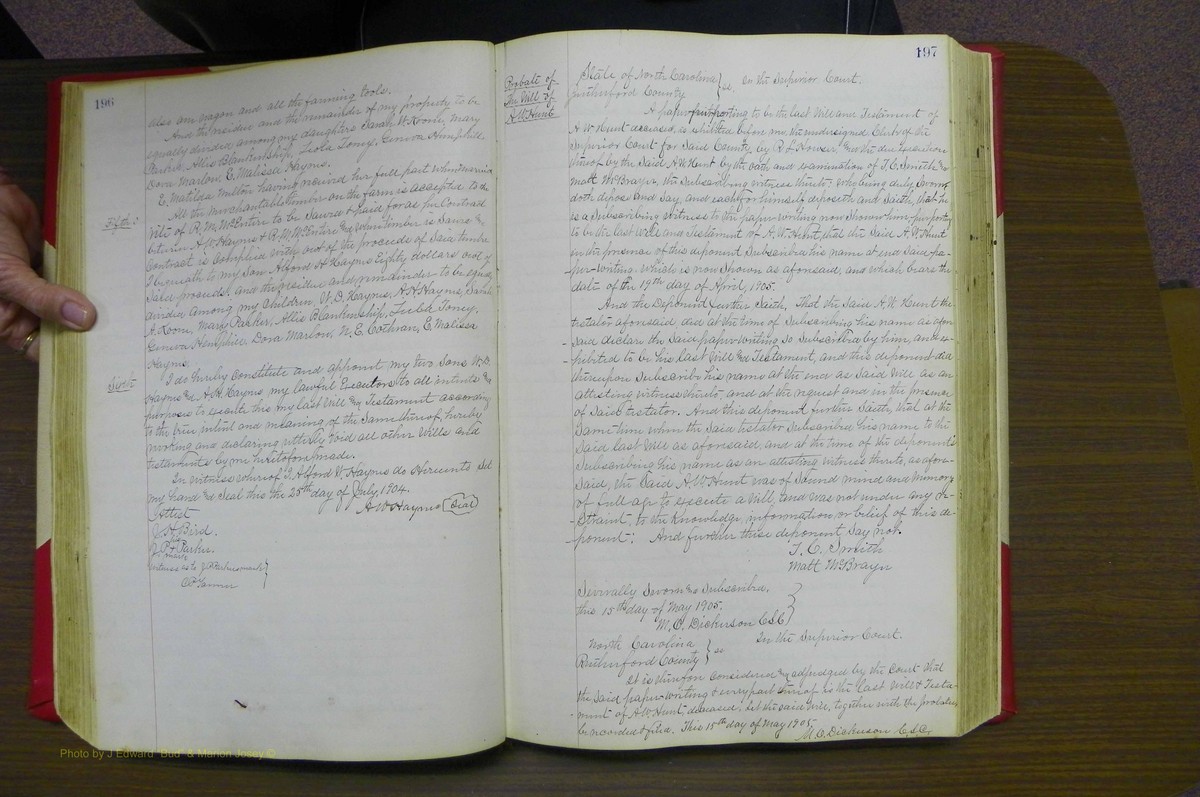 196
also one wagon and all the farming tools.
And the residue and the remainder of my property to be
equally divided among my daughters Sarah A. Koone, Mary
Parker, Allis Blankenship, Leola Toney, Geneva Hemphill,
Dora Marlow, E. Malissa Haynes.
E. Matilda Melton having received her full part when married
Fifth
All the merchantable timber on the farm is accepted to the
of R. M. McEntire to be sawed & paid for as per Contract
between A. W. Haynes & R. M. McEntire & when timber is Sawed &
Contract is complied with out of the proceeds of Said timber
I bequeath to my Son Alford H Haynes Eighty dollars out of
Said proceeds, and the residue and remainder to be equally
divided among my Children, W. D. Haynes, A. H. Haynes, Sarah
A. Koon, Mary Parker, Allis Blankenship, Leola Toney,
Geneva Hemphill Dora Marlow, N. E. Cothran, E. Malissa
Haynes.
Sixth
I do hereby constitute and appoint my two Sons W. D.
Haynes & A. H. Haynes my lawful Executors to all intents &
purposes to execute this my last Will & Testament according
to the true intent and meaning of the Same thereof, hereby
revoking and declaring utterly void all other Wills and
testaments by me heretofore made.
In witness whereof I Alford W. Haynes do hereunto Set
my hand & Seal this the 25th day of July, 1904.
Attest
A W Haynes (Seal)
J. H. Bird.
his
J. P. + Parker.
mark
Witness as to J P Parker mark
C P Tanner
197
Probate of
the Will of
A. W. Hunt
State of North Carolina
Rutherford County } ss. In the Superior Court.
A paper purporting to be the last Will and Testament of
A W Hunt deceased, is exhibited before me, the undersigned Clerk of the
Superior Court for Said County, by R. L. Houser, & the due execution
thereof by the Said A W Hunt by the oath and examination of T. C. Smith &
Matt McBrayer, the Subscribing witness thereto, who being duly Sworn
doth depose and Say, and each for himself deposeth and Saith, that he
is a Subscribing witness to the paper-writing now Shown him purporting
to be the last Will and Testament of A. W. Hunt, that the Said A. W. Hunt
in the presence of this deponent Subscribed his name at end Said pa-
-per-writing, which is now Shown as aforesaid, and which bears the
date of the 19th day of April, 1905.
And the Deponent further Saith, That the Said A. W. Hunt the
testator aforesaid, did at the time of Subscribing his name as afore-
-said declare the Said paper-writing So Subscribed by him, and ex-
-hibited to be his last Will & Testament, and this deponent did
thereupon Subscribe his name at the end as Said Will as an
attesting witness thereto, and at the request and in the presence
of Said testator. And this deponent further Saith, that at the
Same time when the Said testator Subscribed his name to the
Said last Will as aforesaid, and at the time of the deponents
Subscribing his name as an attesting witness thereto, as afore-
Said, the Said A. W. Hunt was of Sound mind and memory
of full age to execute a Will, and was not under any re-
-straint to the knowledge, information, or belief of this de-
-ponent: And further these deponent Say not.
T. C. Smith
Matt McBrayer
Severally Sworn & Subscribed,
this 15th day of May 1905.
M. O. Dickerson C S C }
North Carolina
Rutherford County } ss In the Superior Court.
It is therefore considered & adjudged by the Court that
the Said paper-writing & every part thereof is the last Will & Testa-
-ment of A. W. Hunt, deceased, let the said Will, together with the probate
be recorded & filed. This 15th day of May 1905.
M. O. Dickerson C. S. C.
Photo by J Edward "Bud" & Marion Josey ©